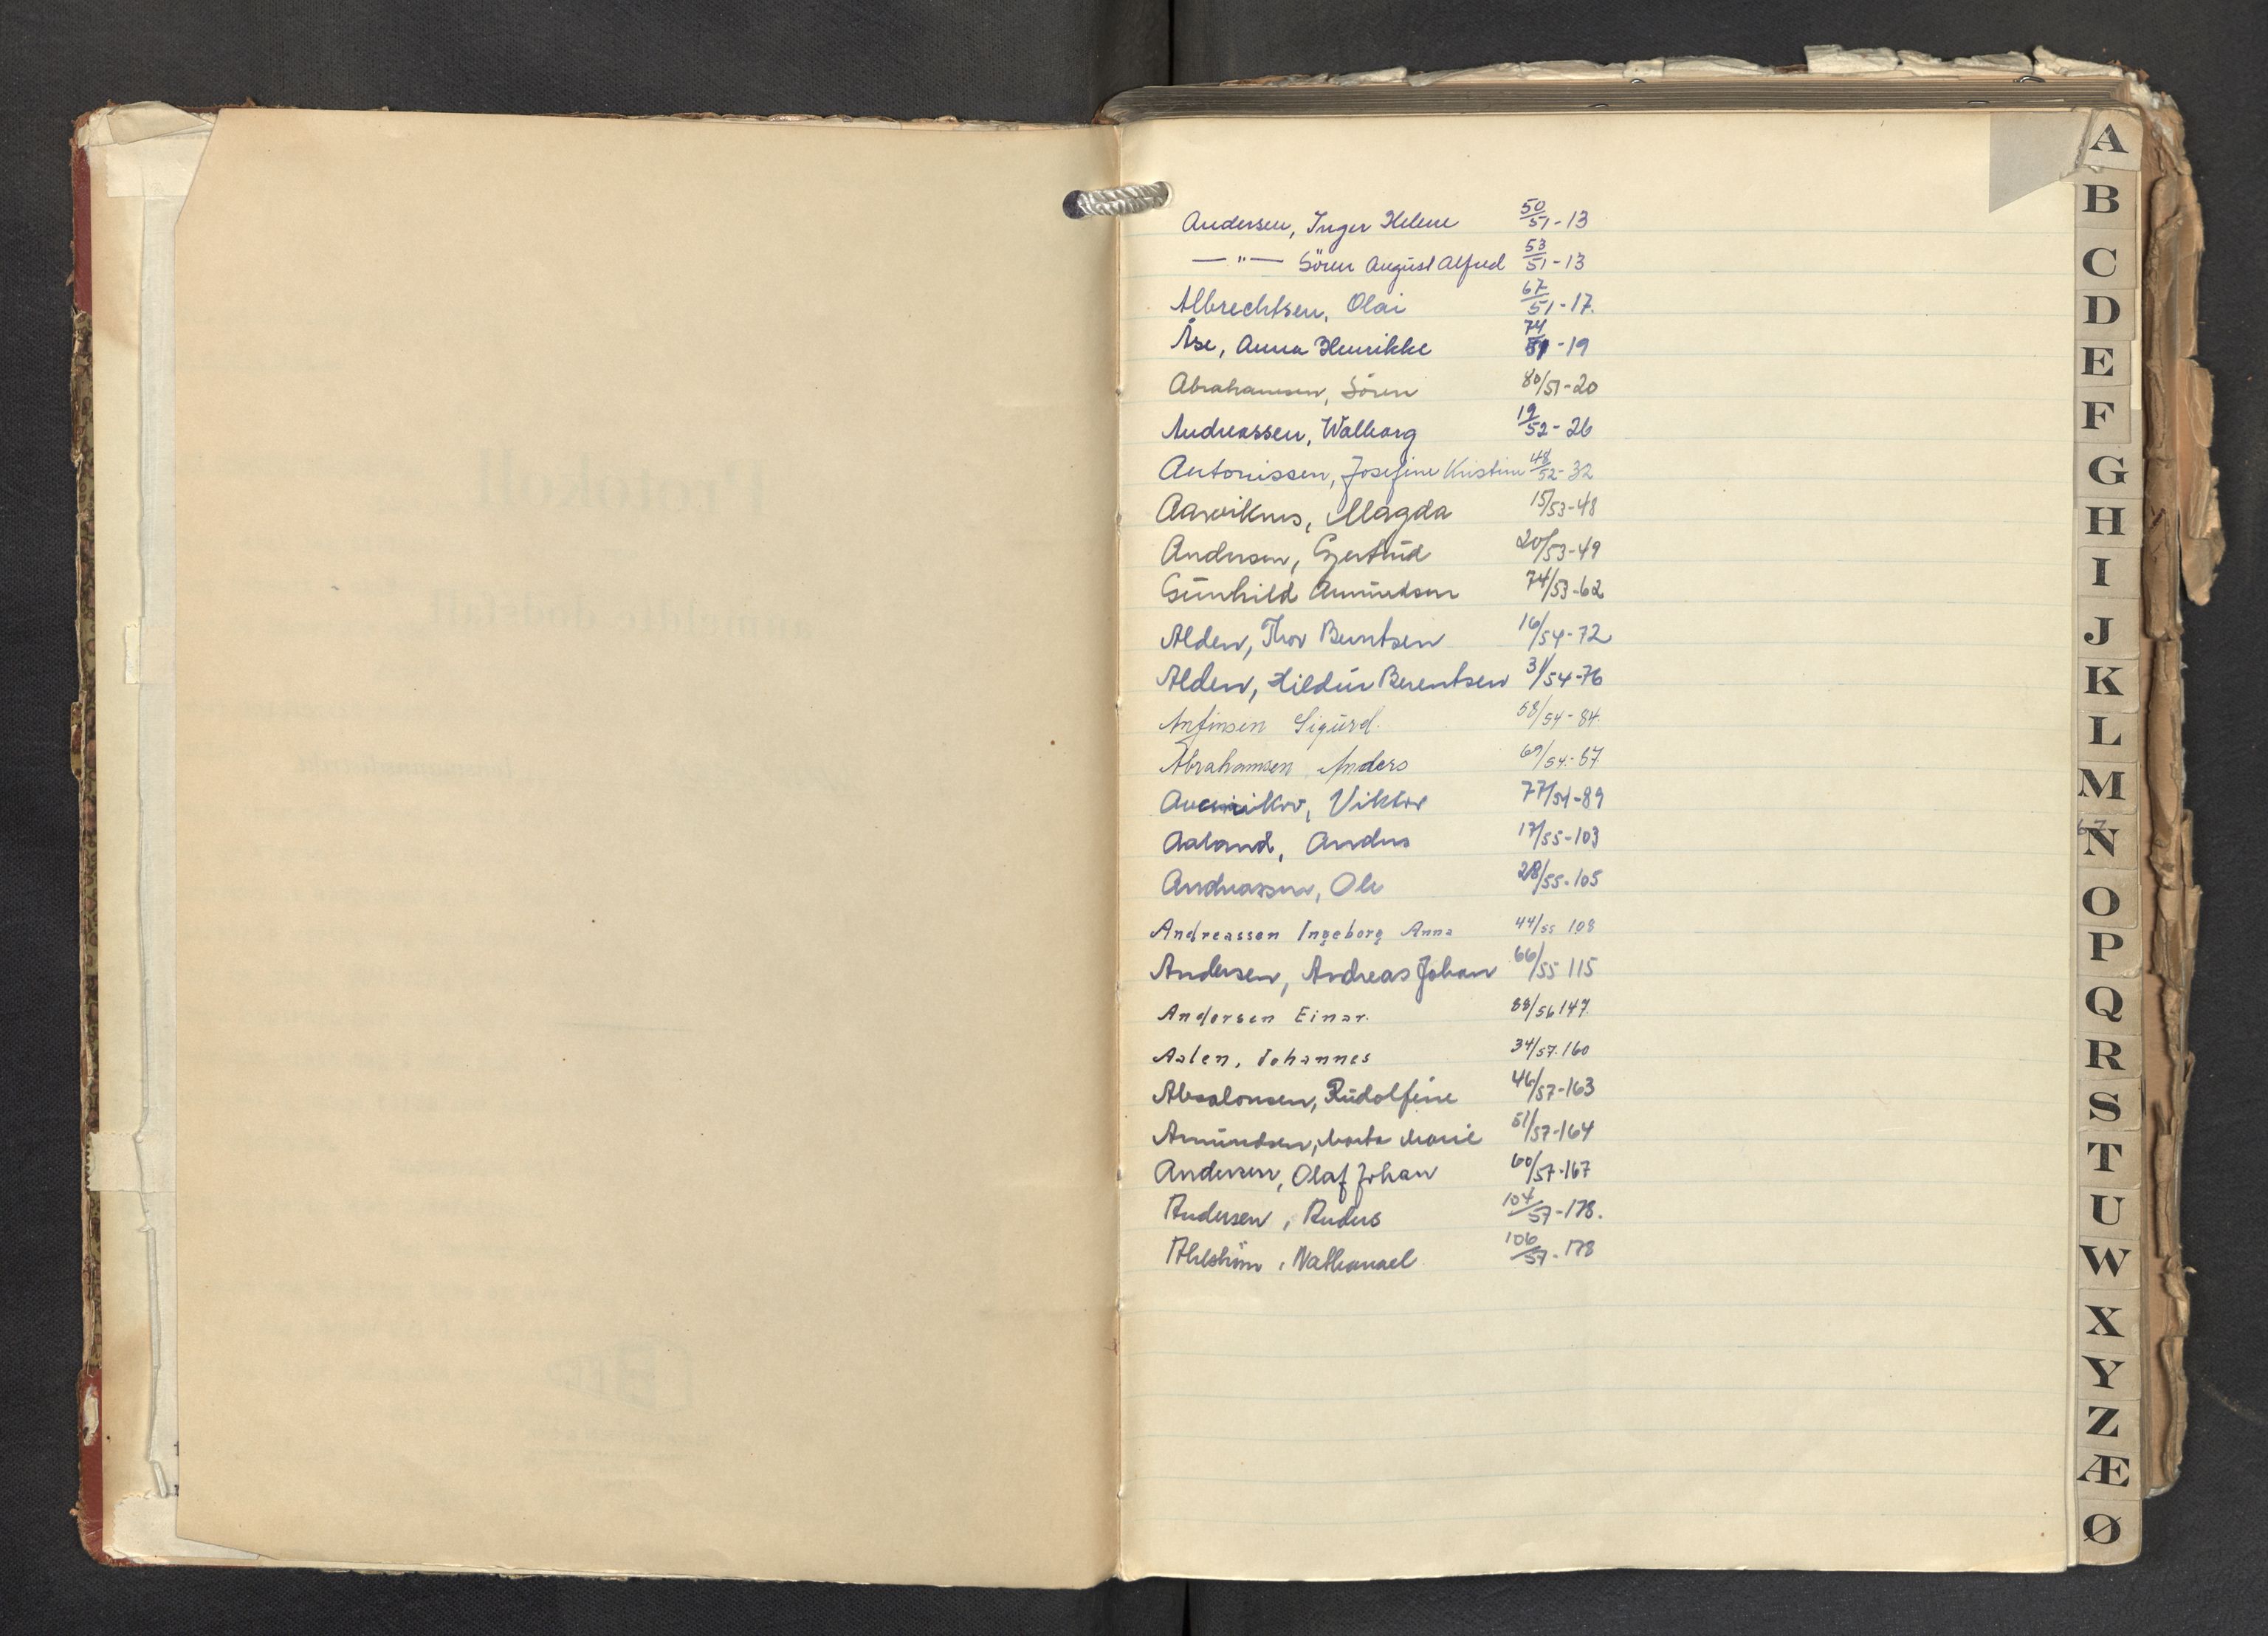 Andersen, Inger Helene 50/51-13
—"— Sören August Alfred 53/51-13
Albrechtsen, Olai 67/51-17.
Åse, Anna Henrikke 74/51-19
Abrahamsen, Sören 80/51-20
Andreassen, Walborg 19/52-26
Antonissen, Josefine Kristine 48/52-32
Aarviknes, Magda 15/53-48
Andersen, Gjertrud 20/53-49
Gunhild Amundsen 74/53-62
Alden, Thor Berntsen 16/54-72
Alden, Hildur Berentsen 31/54-76
Anfinsen Sigurd. 58/54-84.
Abrahamsen, Anders 69/54-87.
Viktor 77/54-89
Aaland, Anders 17/55-103
Andreassen, Ole 28/55-105
Andreassen Ingeborg Anna 44/55 108
Andersen, Andreas Johan 66/55 115
Andersen Einar. 88/56 147.
Aalen, Johannes 34/57.160
Absalonsen, Rudolfine 46/57-163
Amundsen, Marta Marie 51/57-164
Andersen, Olaf Johan 60/57-167
Andersen, Anders 104/57-178.
Ahlström, Nathanael 106/57-178
A
B
C
D
E
F
G
H
I
J
K
L
M
N
O
P
Q
R
S
T
U
W
X
Y
Z
Æ
Ø